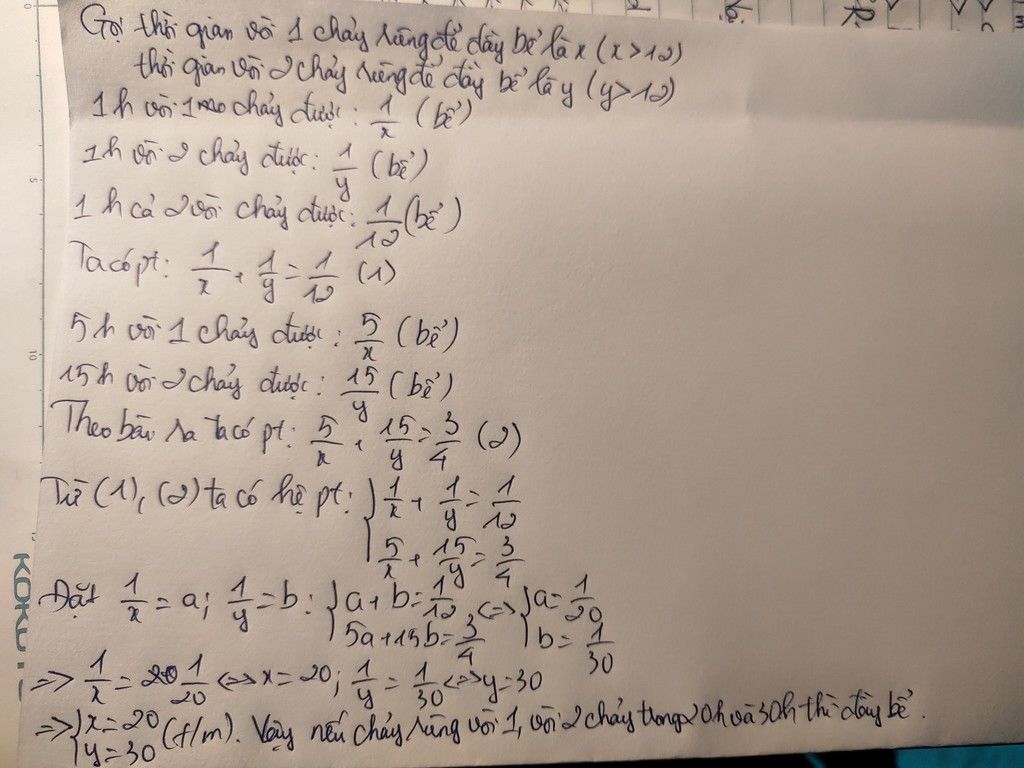 Gọi thời gian vòi 1 chảy riêng để đầy bể là x (x>12)
thời gian vòi 2 chảy riêng để đầy bể là y (y>12)
1h vòi 1 chảy được: 1/x (bể)
1h vòi 2 chảy được: 1/y (bể)
1h cả 2 vòi chảy được: 1/12 (bể)
Ta có pt: 1/x + 1/y = 1/12 (1)
5h vòi 1 chảy được: 5/x (bể)
15h vòi 2 chảy được: 15/y (bể)
Theo bài ra ta có pt: 5/x + 15/y = 3/4 (2)
Từ (1), (2) ta có hệ pt: { 1/x + 1/y = 1/12
5/x + 15/y = 3/4
Đặt 1/x = a; 1/y = b: { a + b = 1/12 <=> { a = 1/20
5a + 15b = 3/4 b = 1/30
=> 1/x = 1/20 <=> x = 20; 1/y = 1/30 <=> y = 30
=> { x = 20 (t/m). Vậy nếu chảy riêng vòi 1, vòi 2 chảy trong 20h và 30h thì đầy bể.
y = 30
KOKU